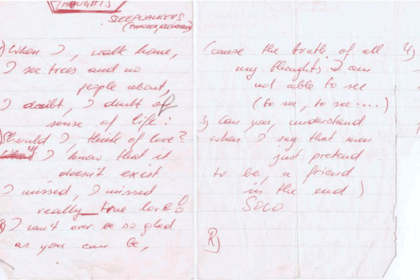 THOUGHTS
SLEEPWALKERS
When I, walk home,
I see trees and no
people about,
I doubt, I doubt of
sense of life!
Should I, think of love?
I know that it
doesn't exist
I missed, I missed
really true love!
R) I can't ever be so glad
as you can be,
('cause the truth of all
my thoughts I am
not able to see
(to see, to see....)
3) Can you, understand
when I say that men
just pretend
to be, a friend
in the end)
SOLO
R)
4)